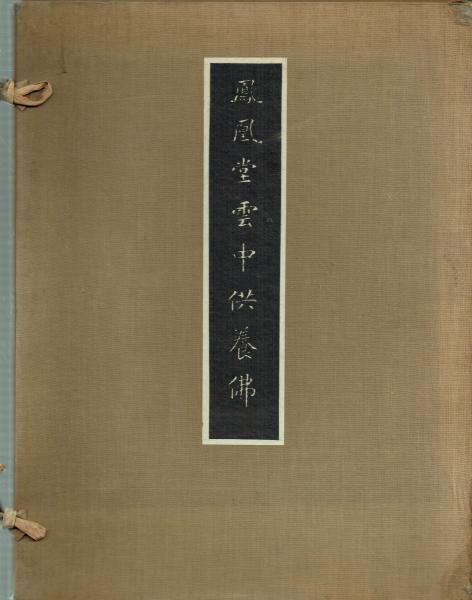 鳳凰堂雲中供養佛